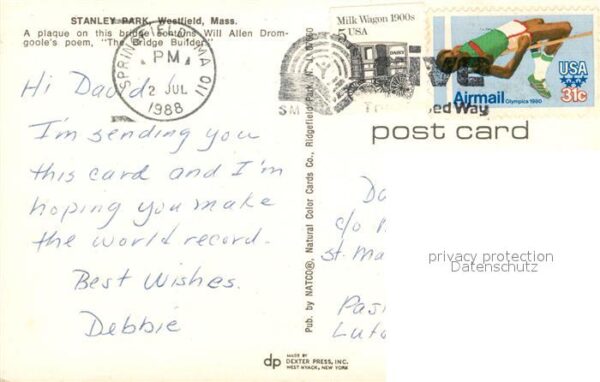 STANLEY PARK, Westfield, Mass.
A plaque on this bridge contains Will Allen Drom-
goole's poem, "The Bridge Builder".
SPRINGFIELD, MA 011
PM
2 JUL
1988
Milk Wagon 1900s
5 USA
DAIRY
USA
Airmail Olympics 1980
31c
Way
post card
Hi David!
I'm sending you
this card and I'm
hoping you make
the world record.
Best Wishes.
Debbie
Pub. by NATCO®, Natural Color Cards Co., Ridgefield Park, N. J.
c/o
St. Ma
privacy protection
Datenschutz
dp MADE BY
DEXTER PRESS, INC.
WEST NYACK, NEW YORK